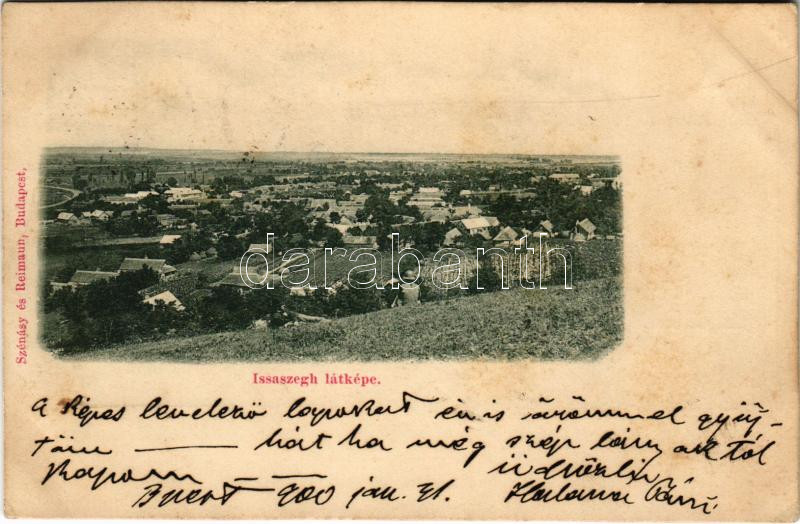 Szénásy és Reimann, Budapest,
darabanth
Issaszegh látképe.
A képes levelező lapokat én is örömmel gyűj-
töm — hát ha még szép lány aktól
kapom — — üdvözlix
900 jan. 21.